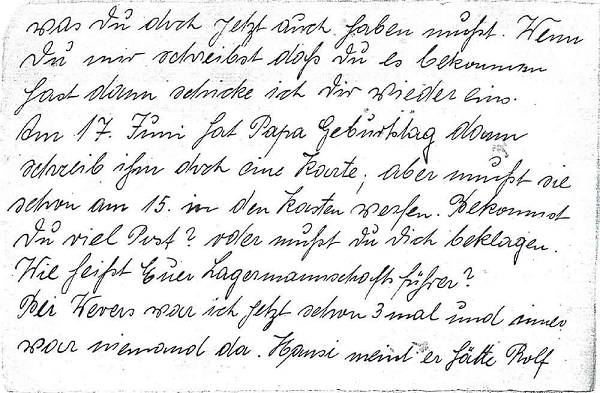 was Du doch jetzt auch haben mußt. Wenn
Du mir schreibst daß Du es bekommen
hast dann schicke ich Dir wieder eins.
Am 17. Juni hat Papa Geburtstag dann
schreib ihm doch eine Karte, aber mußt sie
schon am 15. in den Kasten werfen. Bekommst
Du viel Post? oder mußt Du Dich beklagen.
Wie heißt Euer Lagermannschaftsführer?
Bei Wevers war ich jetzt schon 3 mal und immer
war niemand da. Hansi meint er hätte Rolf